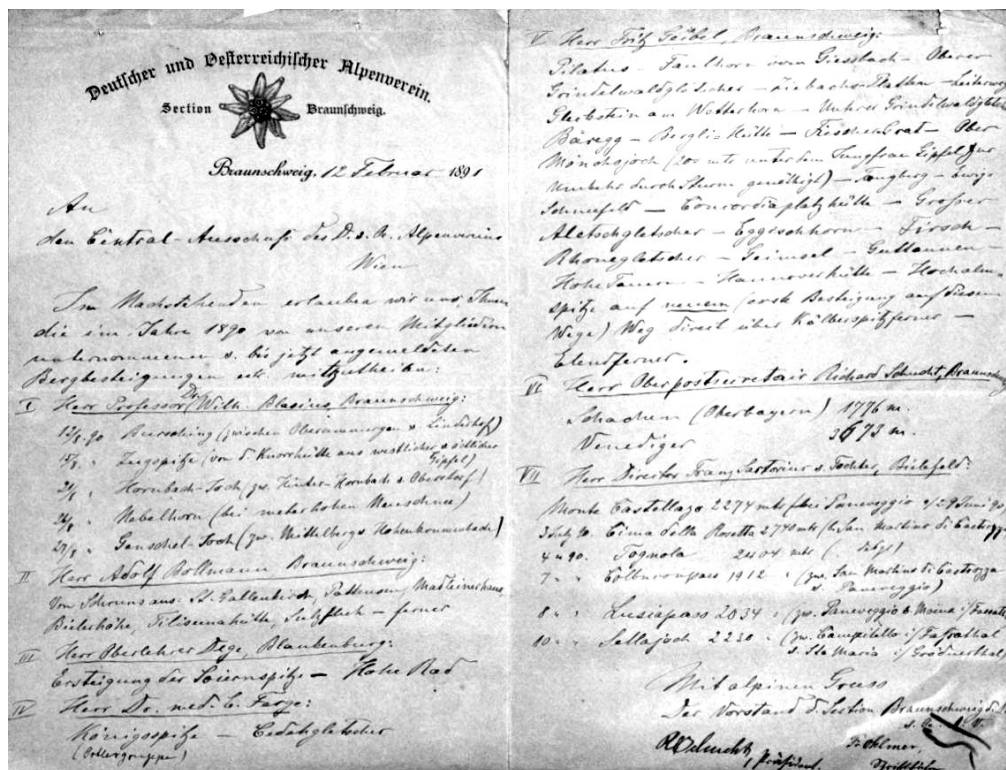 Deutscher und Oesterreichischer Alpenverein.
Section Braunschweig.
Braunschweig, 12 Februar 1891
An
den Central-Ausschuß des D. u. Oe. Alpenvereins
Wien
Im Nachstehenden erlauben wir uns, Ihnen
die im Jahre 1890 von unseren Mitgliedern
unternommenen u. bis jetzt angemeldeten
Bergbesteigungen etc. mitzutheilen:
I Herr Professor Dr. Wilh. Blasius, Braunschweig:
(zwischen Oberammergau u. Linderhof)
Zugspitze (von d. Knorrhütte aus westlicher u. östlicher
Gipfel)
Hornbach-Joch (zw. Hinter-Hornbach u. Oberstdorf)
Nebelhorn (bei meterhohem Neuschnee)
Genschel-Joch (zw. Mittelberg u. Hohenkrummbach)
II Herr Adolf Bollmann, Braunschweig:
Von Schruns aus: St. Gallenkirch, Pattenen, Madlenerhaus
Bielerhöhe, Tilisunahütte, Sulzfluh - ferner
III Herr Oberlehrer Dege, Blankenburg:
Ersteigung der Soiernspitze — Hohe Rad
IV Herr Dr. med. C. Farge:
Königsspitze — Cedehgletscher
(Ortlergruppe)
V Herr Fritz Geibel, Braunschweig:
Pilatus - Faulhorn vom Giessbach - Oberer
Grindelwaldgletscher -
am Wetterhorn - Unterer Grindelwaldgletscher
Bäregg - Bergli-Hütte - - Ober
Mönchsjoch (200 mtr unter dem Jungfrau Gipfel zur
Umkehr durch Sturm genöthigt) - - Ewig
Schneefeld — Concordiaplatzhütte — Grosser
Aletschgletscher - Eggischhorn - Fiesch -
Rhonegletscher - Grimsel - Guttannen -
Hohe Tauern - Hannoverhütte - Hochalm
spitze auf neuem (erste Besteigung auf diesem
Wege) Weg direct über Kälberspitzferner —
Elendferner.
VI Herr Oberpostsecretair Richard Schucht, Braunschweig
Schachen (Oberbayern) 1776 m.
Venediger 3673 m.
VII Herr Director Franz Sartorius u. Tochter, Bielefeld:
Monte Castellazo 2274 mtr (bei Paneveggio) 29 Juni 90
3 July 90. Cima della Rosetta 2740 mtr (b. San Martino di Castrozza)
4 " 90. Tognola 2404 mtr
7 " " Colbriconpass 1912 " (zw. San Martino di Castrozza
u. Paneveggio)
8 " " Lusiapass 2034 " (zw. Paneveggio u. Moena i/ Fassathal)
10 " " Sellajoch 2230 " (zw. Campitello i/ Fassathal
u. Sta Maria i/ Grödnerthal)
Mit alpinem Gruss
Der Vorstand d. Section Braunschweig d. D.
u. Oe. A. V.
R Schucht, Präsident.
Ohlmer,
Schriftführer